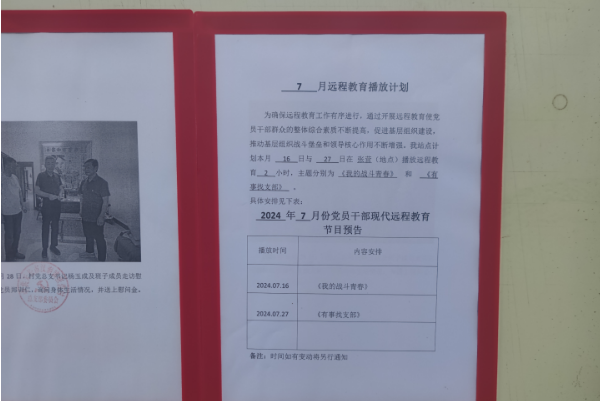 7 月远程教育播放计划
为确保远程教育工作有序进行，通过开展远程教育使党
员干部群众的整体综合素质不断提高，促进基层组织建设，
推动基层组织战斗堡垒和领导核心作用不断增强。我站点计
划本月 16 日与 27 日在 （地点）播放远程教
育 2 小时，主题分别为 《我的战斗青春》 和 《有
事找支部》 。
具体安排见下表：
2024 年 7 月份党员干部现代远程教育
节目预告
播放时间 内容安排
2024.07.16 《我的战斗青春》
2024.07.27 《有事找支部》
备注：时间如有变动将另行通知
月 28 日，村党总支书记